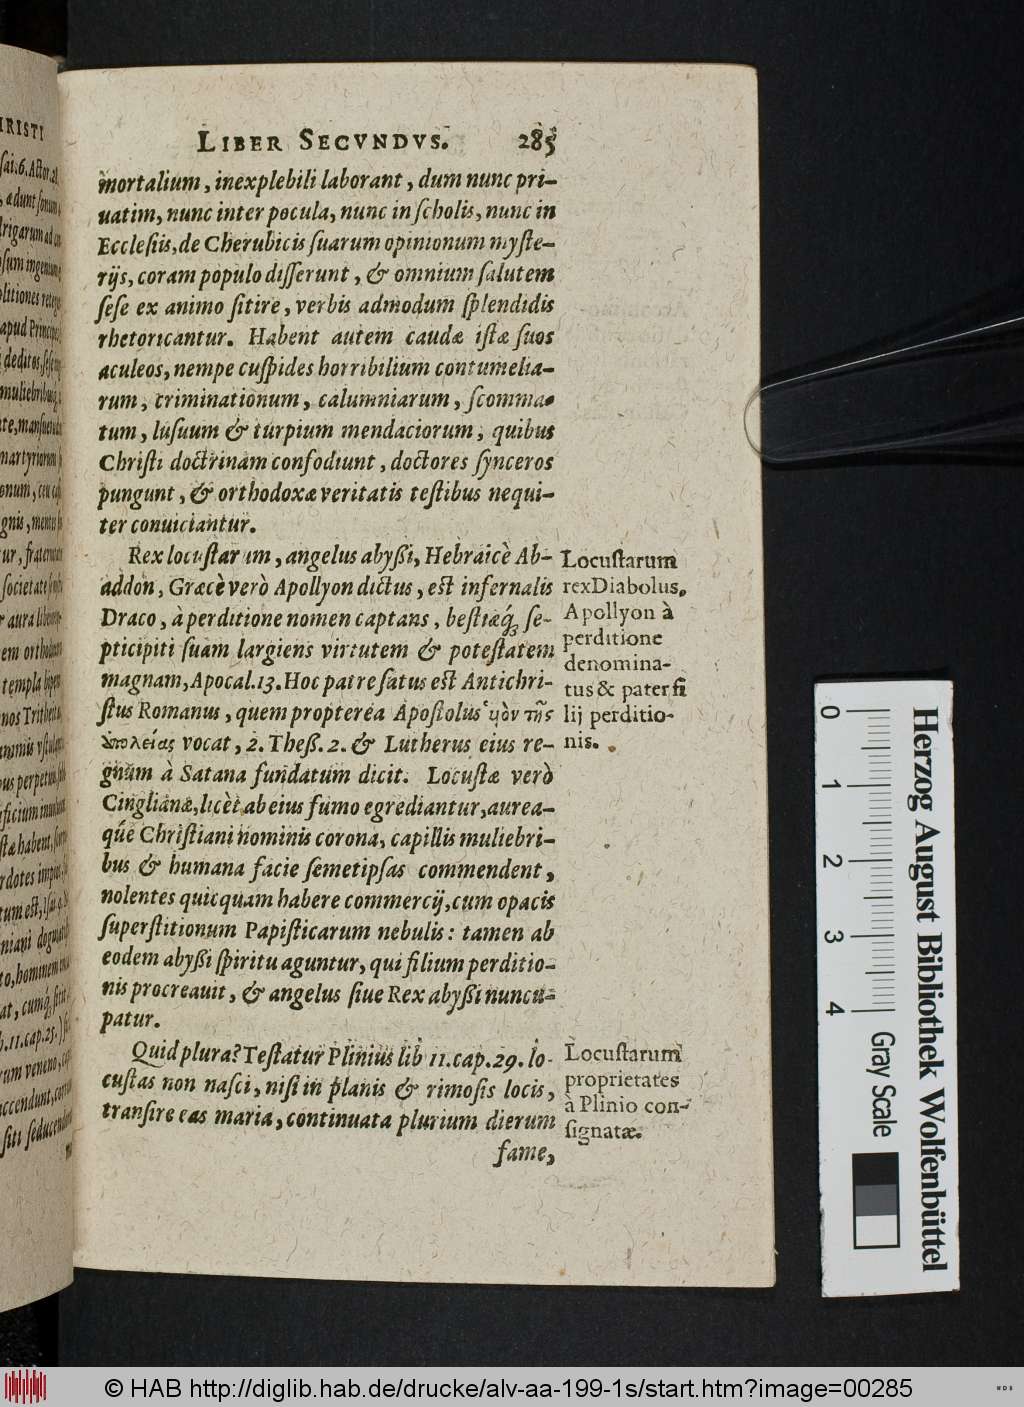 LIBER SECVNDVS. 285
mortalium, inexplebili laborant, dum nunc pri-
uatim, nunc inter pocula, nunc in ſcholis, nunc in
Eccleſiis, de Cherubicis ſuarum opinionum myſte-
rijs, coram populo diſſerunt, & omnium ſalutem
ſeſe ex animo ſitire, verbis admodum ſplendidis
rhetoricantur. Habent autem caudæ iſtæ ſuos
aculeos, nempe cuſpides horribilium contumelia-
rum, criminationum, calumniarum, ſcomma-
tum, luſuum & turpium mendaciorum, quibus
Chriſti doctrinam confodiunt, doctores ſynceros
pungunt, & orthodoxæ veritatis teſtibus nequi-
ter conuiciantur.
Rex locuſtarum, angelus abyßi, Hebraicè Ab-
addon, Græcè verò Apollyon dictus, est infernalis
Draco, à perditione nomen captans, beſtiæq́ꝫ ſe-
pticipiti ſuam largiens virtutem & poteſtatem
magnam, Apocal.13. Hoc patre ſatus est Antichri-
ſtus Romanus, quem propterea Apoſtolus ὑὸν τῆς
ἀπολείας vocat, 2. Theß. 2. & Lutherus eius re-
gnum à Satana fundatum dicit. Locuſtæ verò
Cinglianæ, licèt ab eius fumo egrediantur, aurea-
q́ue Chriſtiani nominis corona, capillis muliebri-
bus & humana facie ſemetipſas commendent,
nolentes quicquam habere commercij, cum opacis
ſuperſtitionum Papiſticarum nebulis: tamen ab
eodem abyßi ſpiritu aguntur, qui filium perditio-
nis procreauit, & angelus ſiue Rex abyßi nuncu-
patur.
Quid plura? Teſtatur Plinius lib 11. cap. 29. lo-
cuſtas non naſci, niſi in planis & rimoſis locis,
tranſire eas maria, continuata plurium dierum
fame,
Locuſtarum
rex Diabolus,
Apollyon à
perditione
denomina-
tus & pater fi
lij perditio-
nis.
Locuſtarum
proprietates
à Plinio con-
ſignatæ.
Herzog August Bibliothek Wolfenbüttel
0 1 2 3 4 Gray Scale
© HAB http://diglib.hab.de/drucke/alv-aa-199-1s/start.htm?image=00285